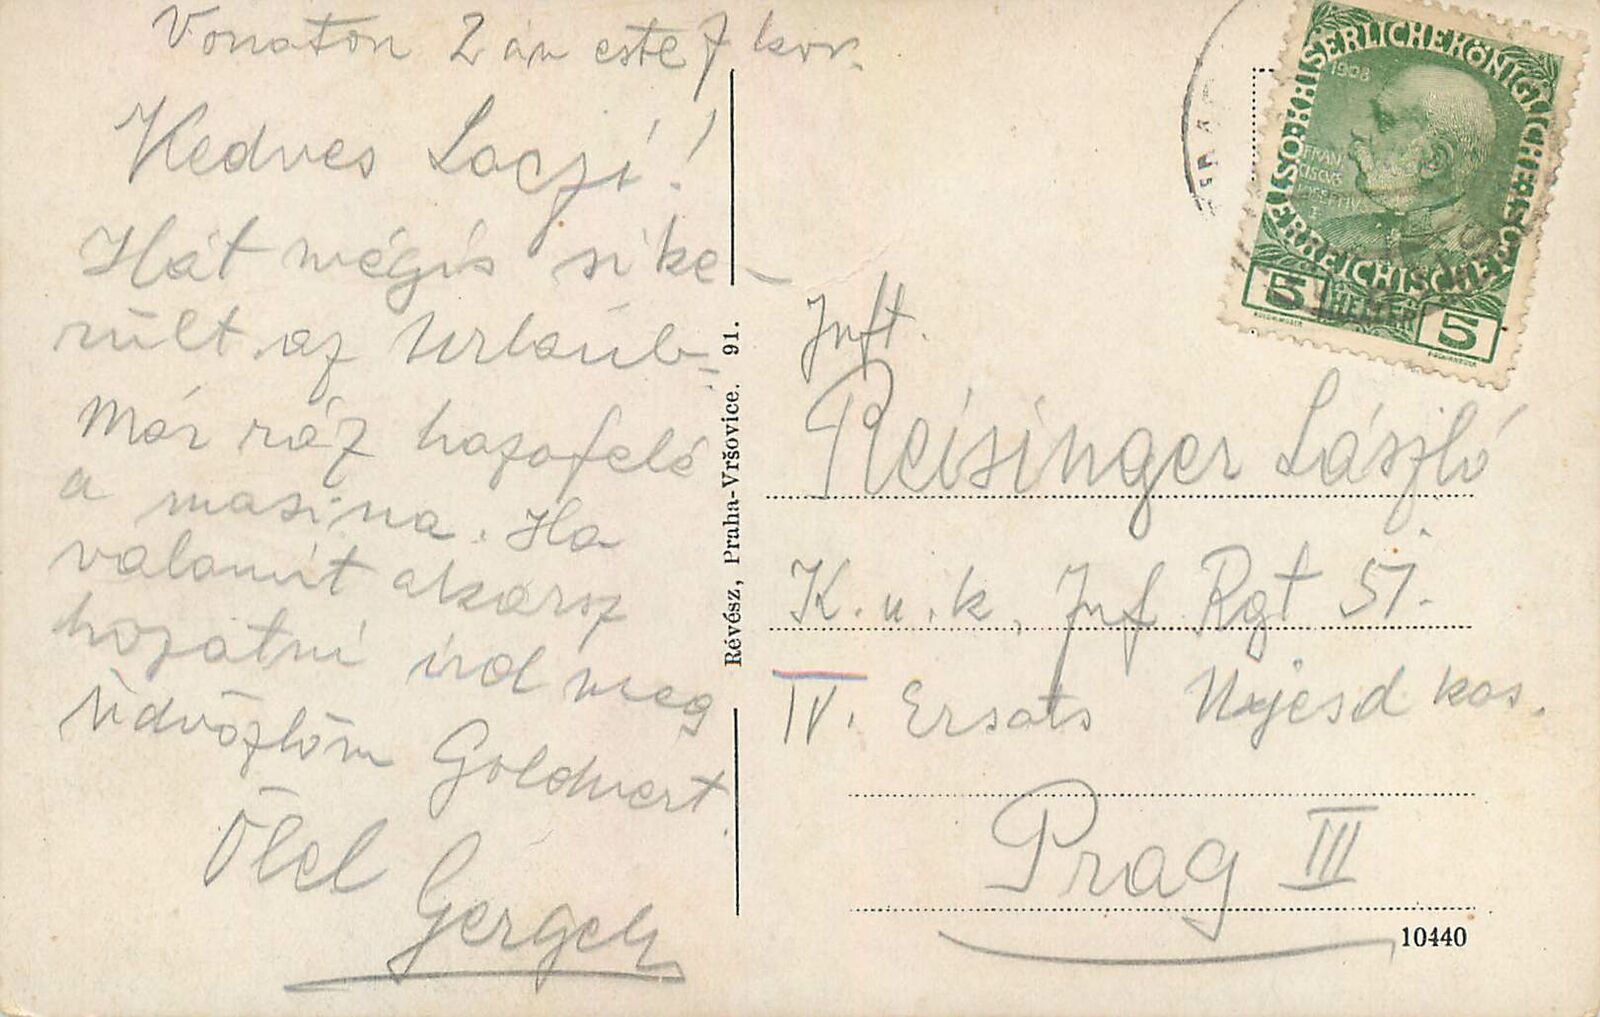 Vonaton 2 án este 7 kor.
Kedves Laczi!
Hát mégis sike-
rült az Urlaub.
Már ráz hazafelé
a masina. Ha
valamit akarsz
hozatni írd meg
Üdvözlöm Goldwert.
Ölel
Gergely
Révész, Praha-Vršovice. 91.
KAISERLICHE KÖNIGLICHE ÖSTERREICHISCHE POST
1908
FRAN
CISCVS
IOSEPHVS
I
5 HELLER 5
Inft.
Reisinger László
K. u. k. Inf Rgt 51.
IV. Ersats Ujesd kas.
Prag III
10440